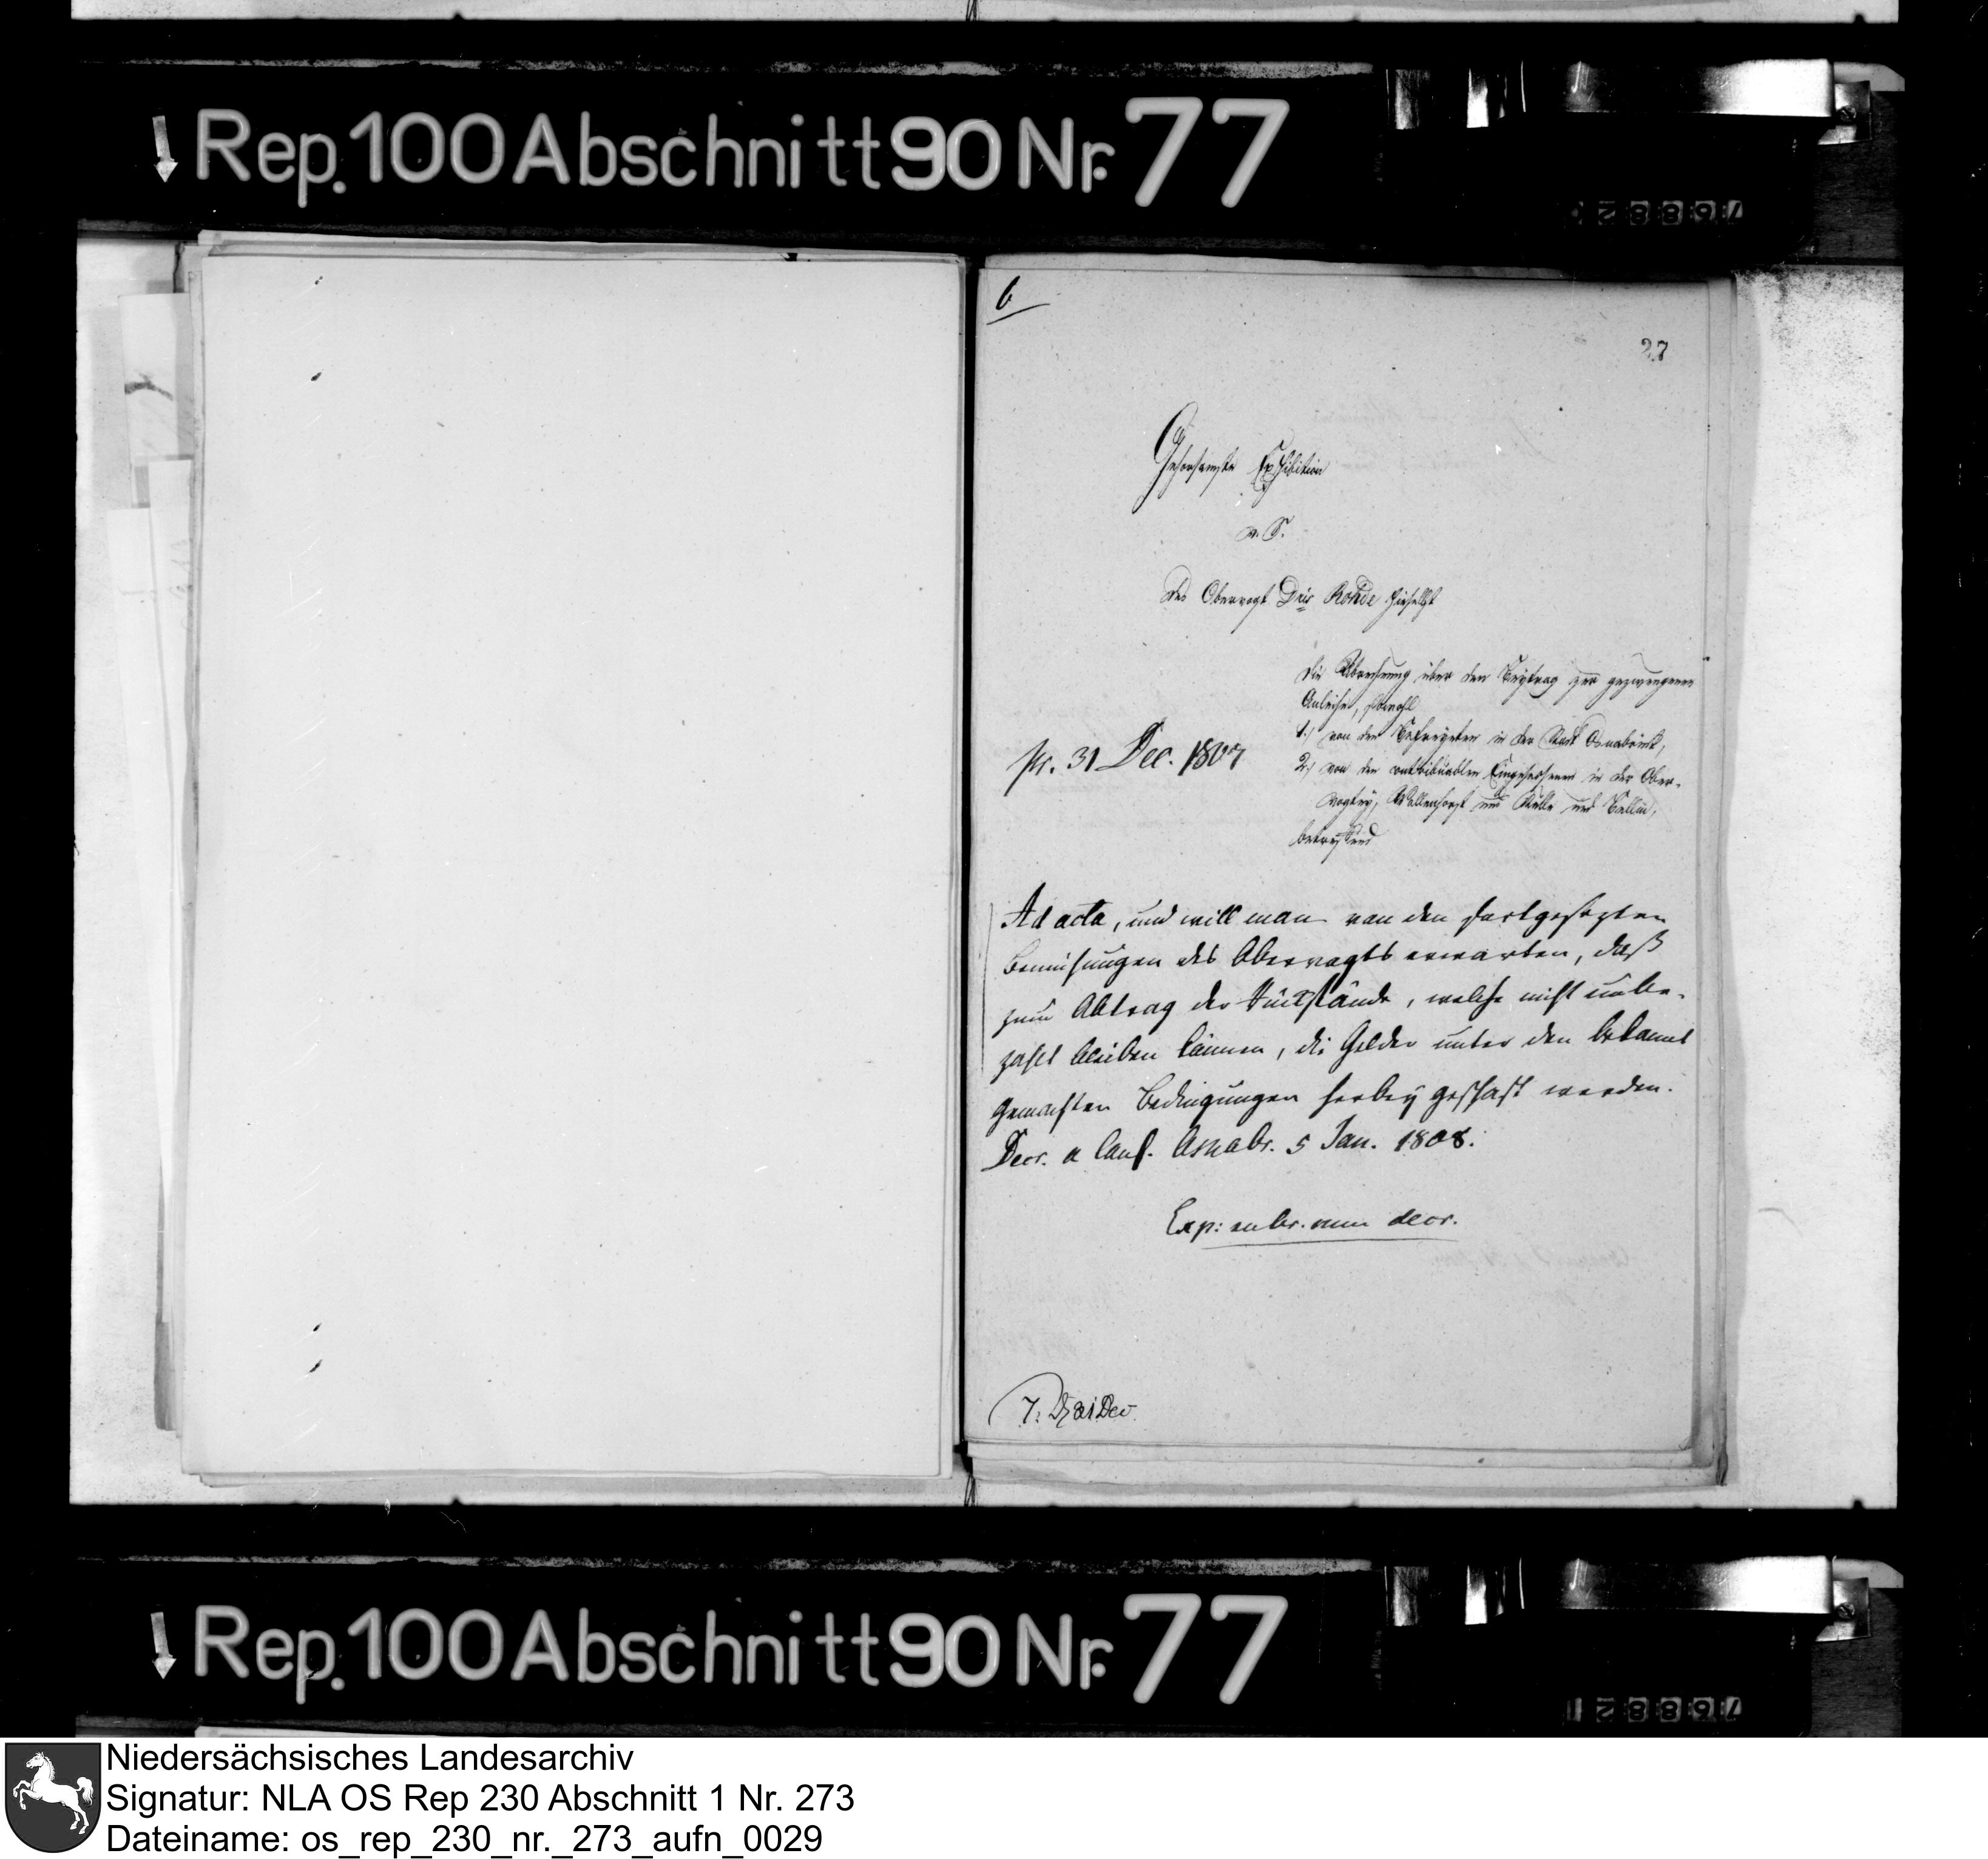 Rep. 100 Abschnitt 90 Nr. 77
76882
6
27
Gehorsamste Exhibition
v. S.
des Obervogt Dris Rohde hieselbst
die Abrechnung über den Beytrag zur gezwungenen
Anleihe, sowohl
1.) von den Befreyeten in der Stadt Osnabrück,
2.) von den contribuablen Eingesessenen in der Ober-
vogtey, Wallenhorst und Rulle und Bellm,
betreffend
pr. 31 Dec. 1807
Ad acta, und will man von den fortgesezten
Bemühungen des Obervogts erwarten, daß
zum Abtrag der Rückstände, welche nicht unbe-
zahlt bleiben können, die Gelder unter den bekannt
gemachten Bedingungen herbey geschaft werden.
Decr. a Cons. Osnabr. 5 Jan. 1808.
Exp: sub. num decr.
Rep. 100 Abschnitt 90 Nr. 77
76882
Niedersächsisches Landesarchiv
Signatur: NLA OS Rep 230 Abschnitt 1 Nr. 273
Dateiname: os_rep_230_nr._273_aufn_0029